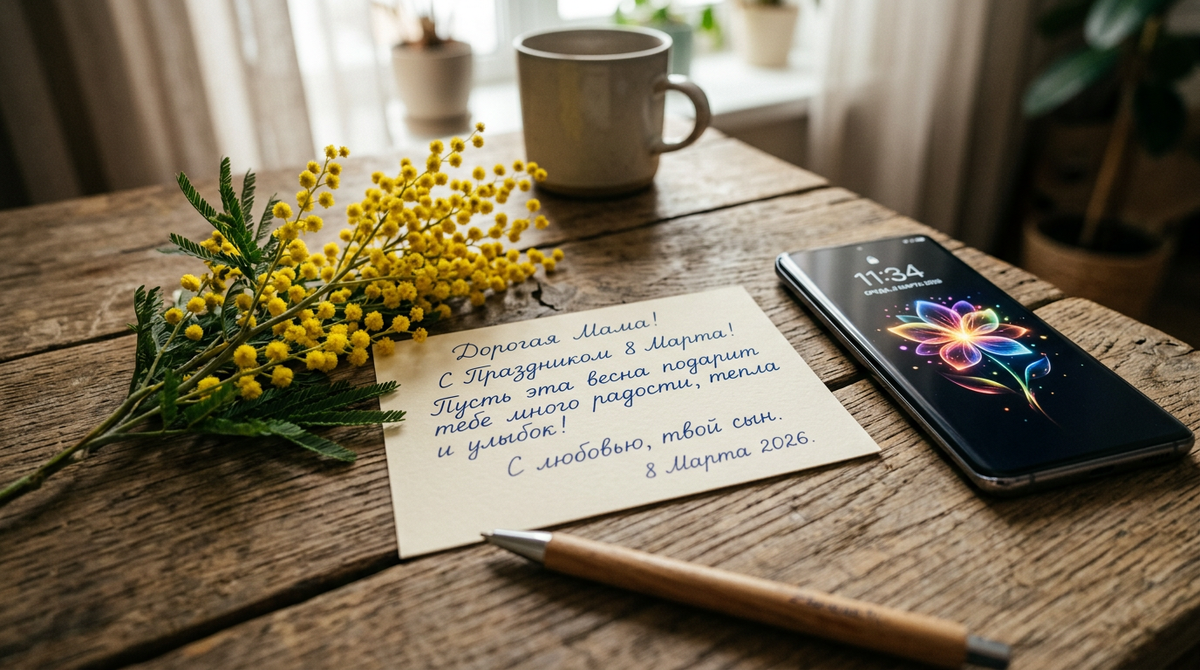 Дорогая Мама!
С Праздником 8 Марта!
Пусть эта весна подарит
тебе много радости, тепла
и улыбок!
С любовью, твой сын.
8 Марта 2026.
11:34
СРЕДА, МАРТА